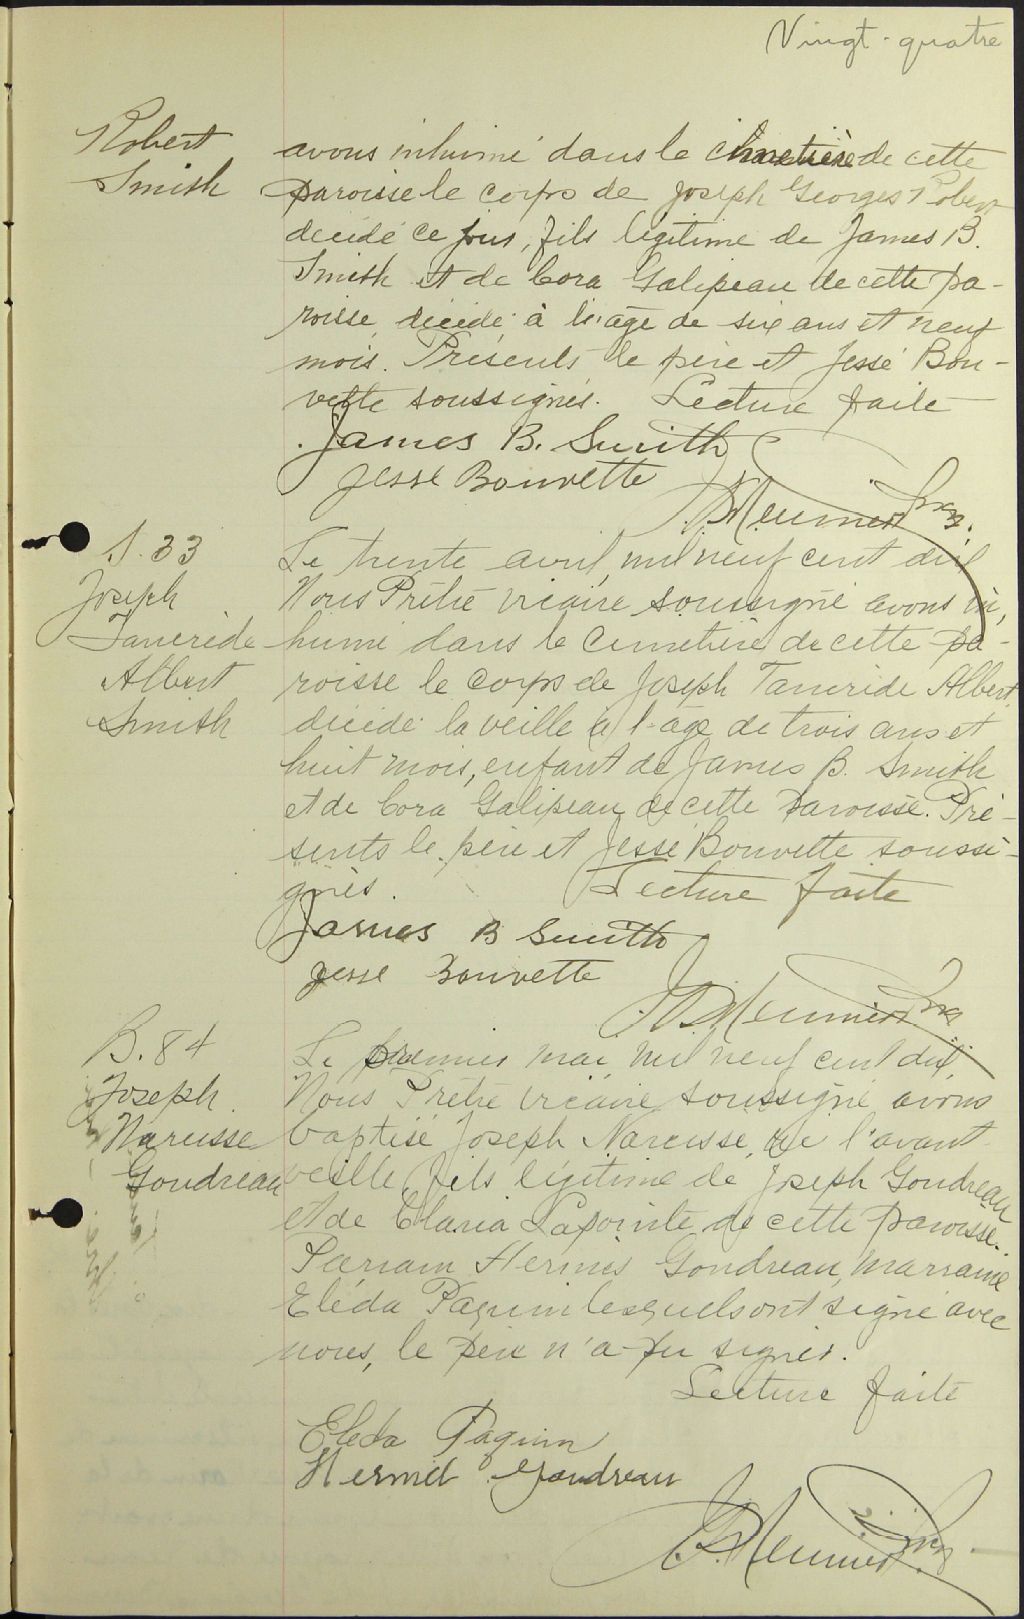 Vingt-quatre
Robert
Smith
avons inhumé dans le cimetière de cette
paroisse le corps de Joseph Georges Robert
décédé ce jour, fils légitime de James B.
Smith et de Cora Galipeau de cette pa-
roisse, décédé à l'âge de six ans et neuf
mois. Présents le père et Jessé Bou-
vette soussignés. Lecture faite
James B. Smith
Jesse Bouvette
Meunier
S. 33
Joseph
Tancride
Albert
Smith
Le trente avril, mil neuf cent dix
Nous Prêtre vicaire soussigné avons in,
humé dans le cimetière de cette pa-
roisse le corps de Joseph Tancride Albert
décédé la veille à l'âge de trois ans et
huit mois, enfant de James B. Smith
et de Cora Galipeau de cette paroisse. Pré-
sents le père et Jessé Bouvette soussi-
gnés. Lecture faite
James B Smith
Jesse Bouvette
Meunier
B. 84
Joseph
Narcisse
Goudreau
Le premier mai, mil neuf cent dix,
Nous Prêtre vicaire soussigné avons
baptisé Joseph Narcisse, né l'avant
veille, fils légitime de Joseph Goudreau
et de Clara Lapointe de cette paroisse.
Parrain Hermes Goudreau, marraine
Eléda Paquin lesquels ont signé avec
nous, le père n'a pu signer.
Lecture faite
Eleda Paquin
Hermel Goudreau
Meunier